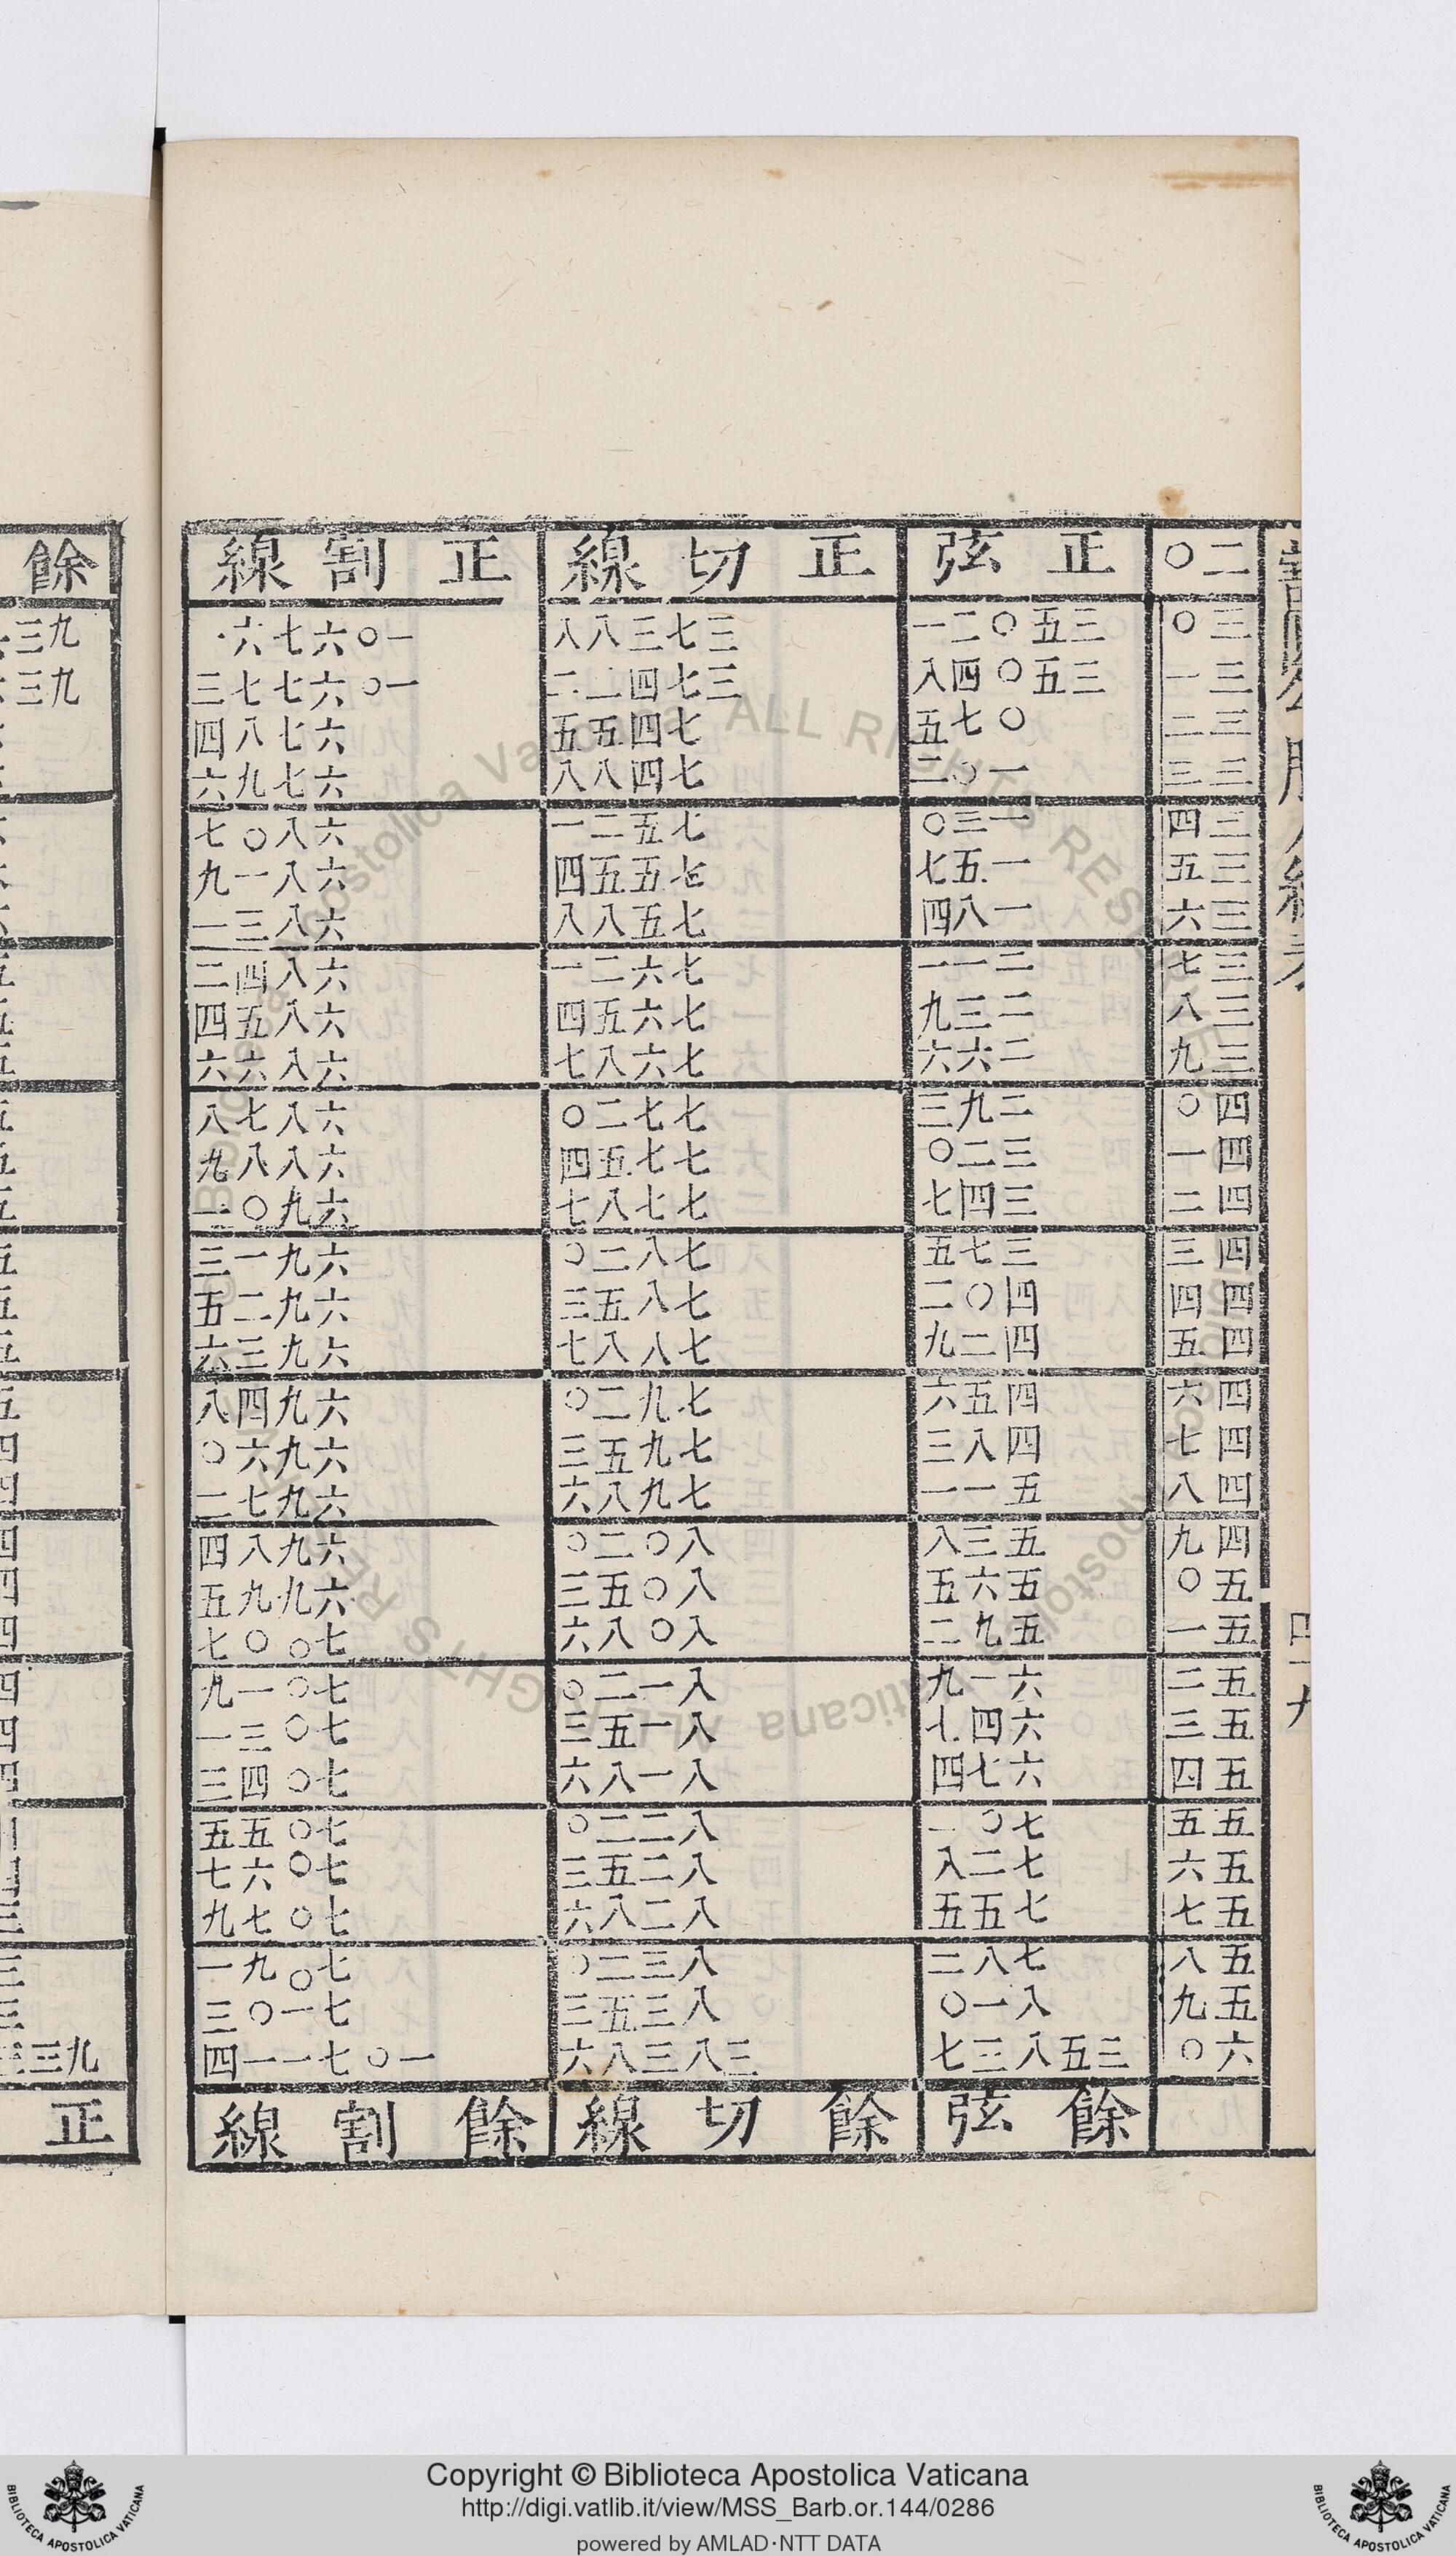 二〇 正弦 正切線 正割線
三〇 三五〇二一 三七三八八 一〇六七六
三一 三五〇四八 三七四二二 一〇六七七三
三二 〇七五 七四五五 六七八四
三三 一〇二 七四八八 六七九六
三四 一三〇 七五二一 六八〇七
三五 一五七 七五五四 六八一九
三六 一八四 七五八八 六八三一
三七 二一一 七六二一 六八四二
三八 二三九 七六五四 六八五四
三九 二六六 七六八七 六八六六
四〇 二九三 七七二〇 六八七八
四一 三二〇 七七五四 六八八九
四二 三四七 七七八七 六九〇一
四三 三七五 七八二〇 六九一三
四四 四〇二 七八五三 六九二五
四五 四二九 七八八七 六九三六
四六 四五六 七九二〇 六九四八
四七 四八三 七九五三 六九六〇
四八 五一一 七九八六 六九七二
四九 五三八 八〇二〇 六九八四
五〇 五六五 八〇五三 六九九五
五一 五九二 八〇八六 七〇〇七
五二 六一九 八一二〇 七〇一九
五三 六四七 八一五三 七〇三一
五四 六七四 八一八六 七〇四三
五五 七〇一 八二二〇 七〇五五
五六 七二八 八二五三 七〇六七
五七 七五五 八二八六 七〇七九
五八 七八二 八三二〇 七〇九一
五九 八一〇 八三五三 七一〇三
六〇 三五八三七 三八三八六 一〇七一一四
餘弦 餘切線 餘割線
餘
九三
九三
九三
正
Copyright © Biblioteca Apostolica Vaticana
http://digi.vatlib.it/view/MSS_Barb.or.144/0286
powered by AMLAD·NTT DATA
BIBLIOTECA APOSTOLICA VATICANA
BIBLIOTECA APOSTOLICA VATICANA